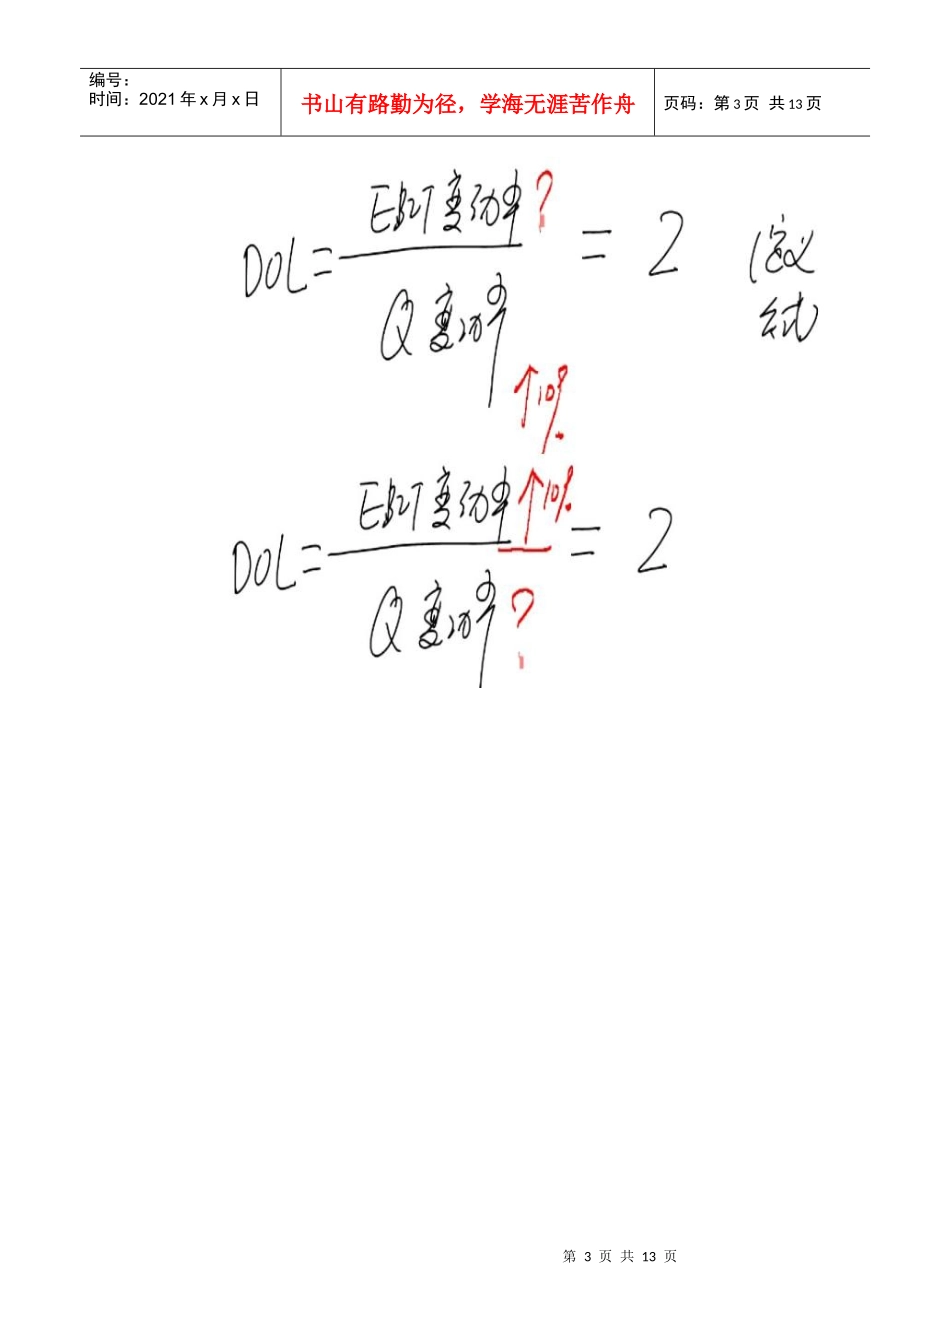 编号：
时间：2021年x月x日
书山有路勤为径，学海无涯苦作舟
页码：第3页 共13页
DOL= EBIT变动率? = 2 (定义
Q变动率 公式
↑10%
DOL= EBIT变动率↑10% = 2
Q变动率?
第 3 页 共 13 页